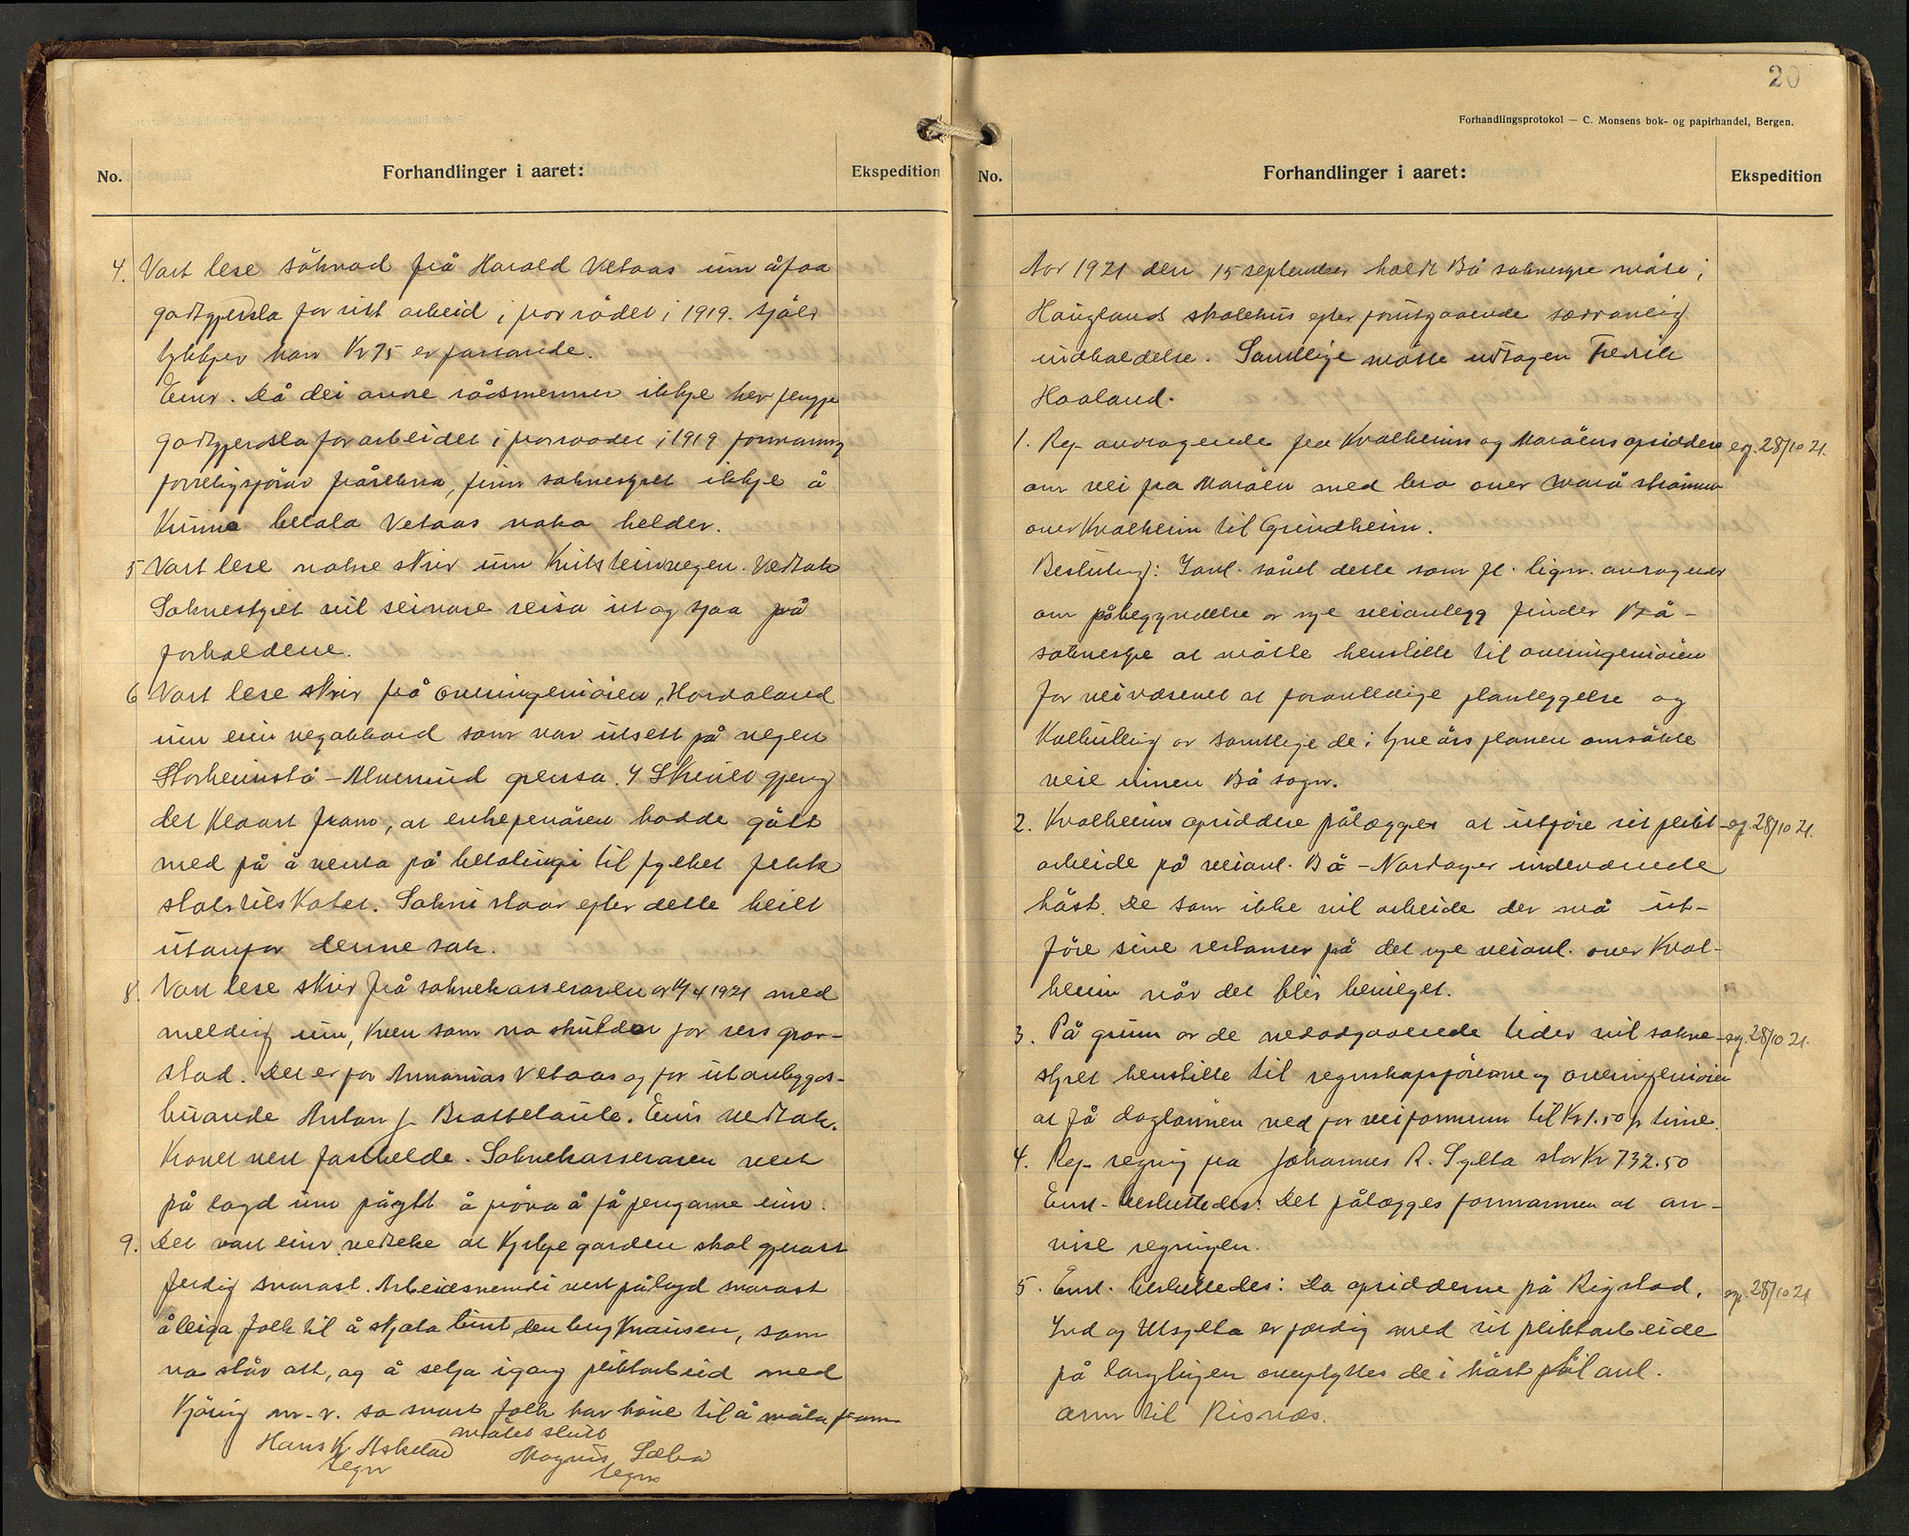 20
Forhandlingsprotokol — C. Monsens bok- og papirhandel, Bergen.
No.
Forhandlinger i aaret:
Ekspedition
4. Vart lese söknad frå Harald Vetaas um å faa
godtgjersla for sitt arbeid i forrådet i 1919. Sjölv
tykkjer han Kr 75 er passande.
Einr. Då dei andre rådsmenner ikkje hev fenge
godtgjersla for arbeidet i forraadet i 1919
frårekna, finn soknestyret ikkje å
kunna betala Vetaas noko helder.
5 Vart lese nokre skriv um vegen. Vedtak
Soknestyret vil seinare reisa ut og sjaa på
forholdene.
6 Vart lese skriv frå overingeniören, Hordaland
um ein vegakkord som var utsett på vegen
Storheimstö - Alversund grensa. I skrivet gjeng
det klaart fram, at entreprenören hadde gått
med på å venta på betalingi til fylket fekk
statstilskotet. Sokni staar efter dette heilt
utanfor denne sak.
8. Vart lese skriv frå soknekasseraren av 14/4 1921 med
melding um, kven som no skuldar for
stad. Det er for Ananias Vetaas og for utanbygds-
buande Anton J. Brattetaule. Einr vedtak.
Kravet vert fasthelde. Soknekasseraren vert
på lagd um pågytt å pröva å få pengarne inn.
9. Det vart einr vedteke at Kyrkjegarden skal gjerast
ferdig snarast. Arbeidsnemdi vert pålagd snarast
å leiga folk til å skjota burt den berg Knausen, som
no står att, og å setja igang pliktarbeid med
Kjöring m.v. so snart folk har höve til å möta fram
mötet slutt
Hans K. Askeland
segn
Magnus Sæbö
segn
No.
Forhandlinger i aaret:
Ekspedition
Aar 1921 den 15 september holdt Bö soknestyre möte i
Haugland skolehus efter forutgaaende sædvanlig
indkaldelse. Samtlige mötte udtagen Fredrik
Haaland.
1. Ref. andragende fra Kvalheims og Maröens opsiddere
eg. 28/10 21.
om vei fra Maröen med bro over Marö strömmen
over Kvalheim til Grindheim.
Beslutning: Ianl. såvel dette som fl. lign. andragender
om påbegyndelse av nye veianlegg finder Bö-
soknestyre at måtte henstille til overingeniören
for veivæsenet at foranledige planleggelse og
Kalkullering av samtlige de i fyreårsplanen omsökte
veie innen Bö sogn.
2. Kvalheims opsiddere pålægges at utföre sit plikt-
eg. 28/10 21.
arbeide på veianl. Bö - Nordanger indeværende
höst. De som ikke vil arbeide der må ut-
före sine restanser på det nye veianl. over Kval-
heim når det blir bevilget.
3. På grunn av de nedadgaaende tider vil sokne-
eg. 28/10 21.
styret henstille til regnskapsförerne og overingeniören
at få daglönnen ned for veiformenn til Kr 1.50 pr time.
4. Ref. regning fra Johannes R. Sylta stor Kr 732.50
Enst. besluttedes: Det pålægges formannen at an-
vise regningen.
5. Enst. besluttedes: Da opsidderne på Rigstad,
eg. 28/10 21
Ind og Utsylta er færdig med sit pliktarbeide
på overflyttes de i höst på anl.
arm til Risnæs.